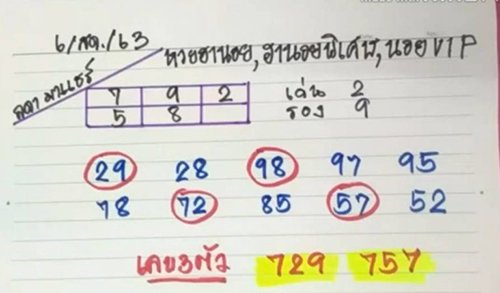 6/สค./63
ลดา มาแชร์
หวยฮานอย, ฮานอยพิเศษ, นอย VIP
7 9 2
5 8
เด่น 2
รอง 9
29 28 98 97 95
78 72 85 57 52
เลข3ตัว 729 757